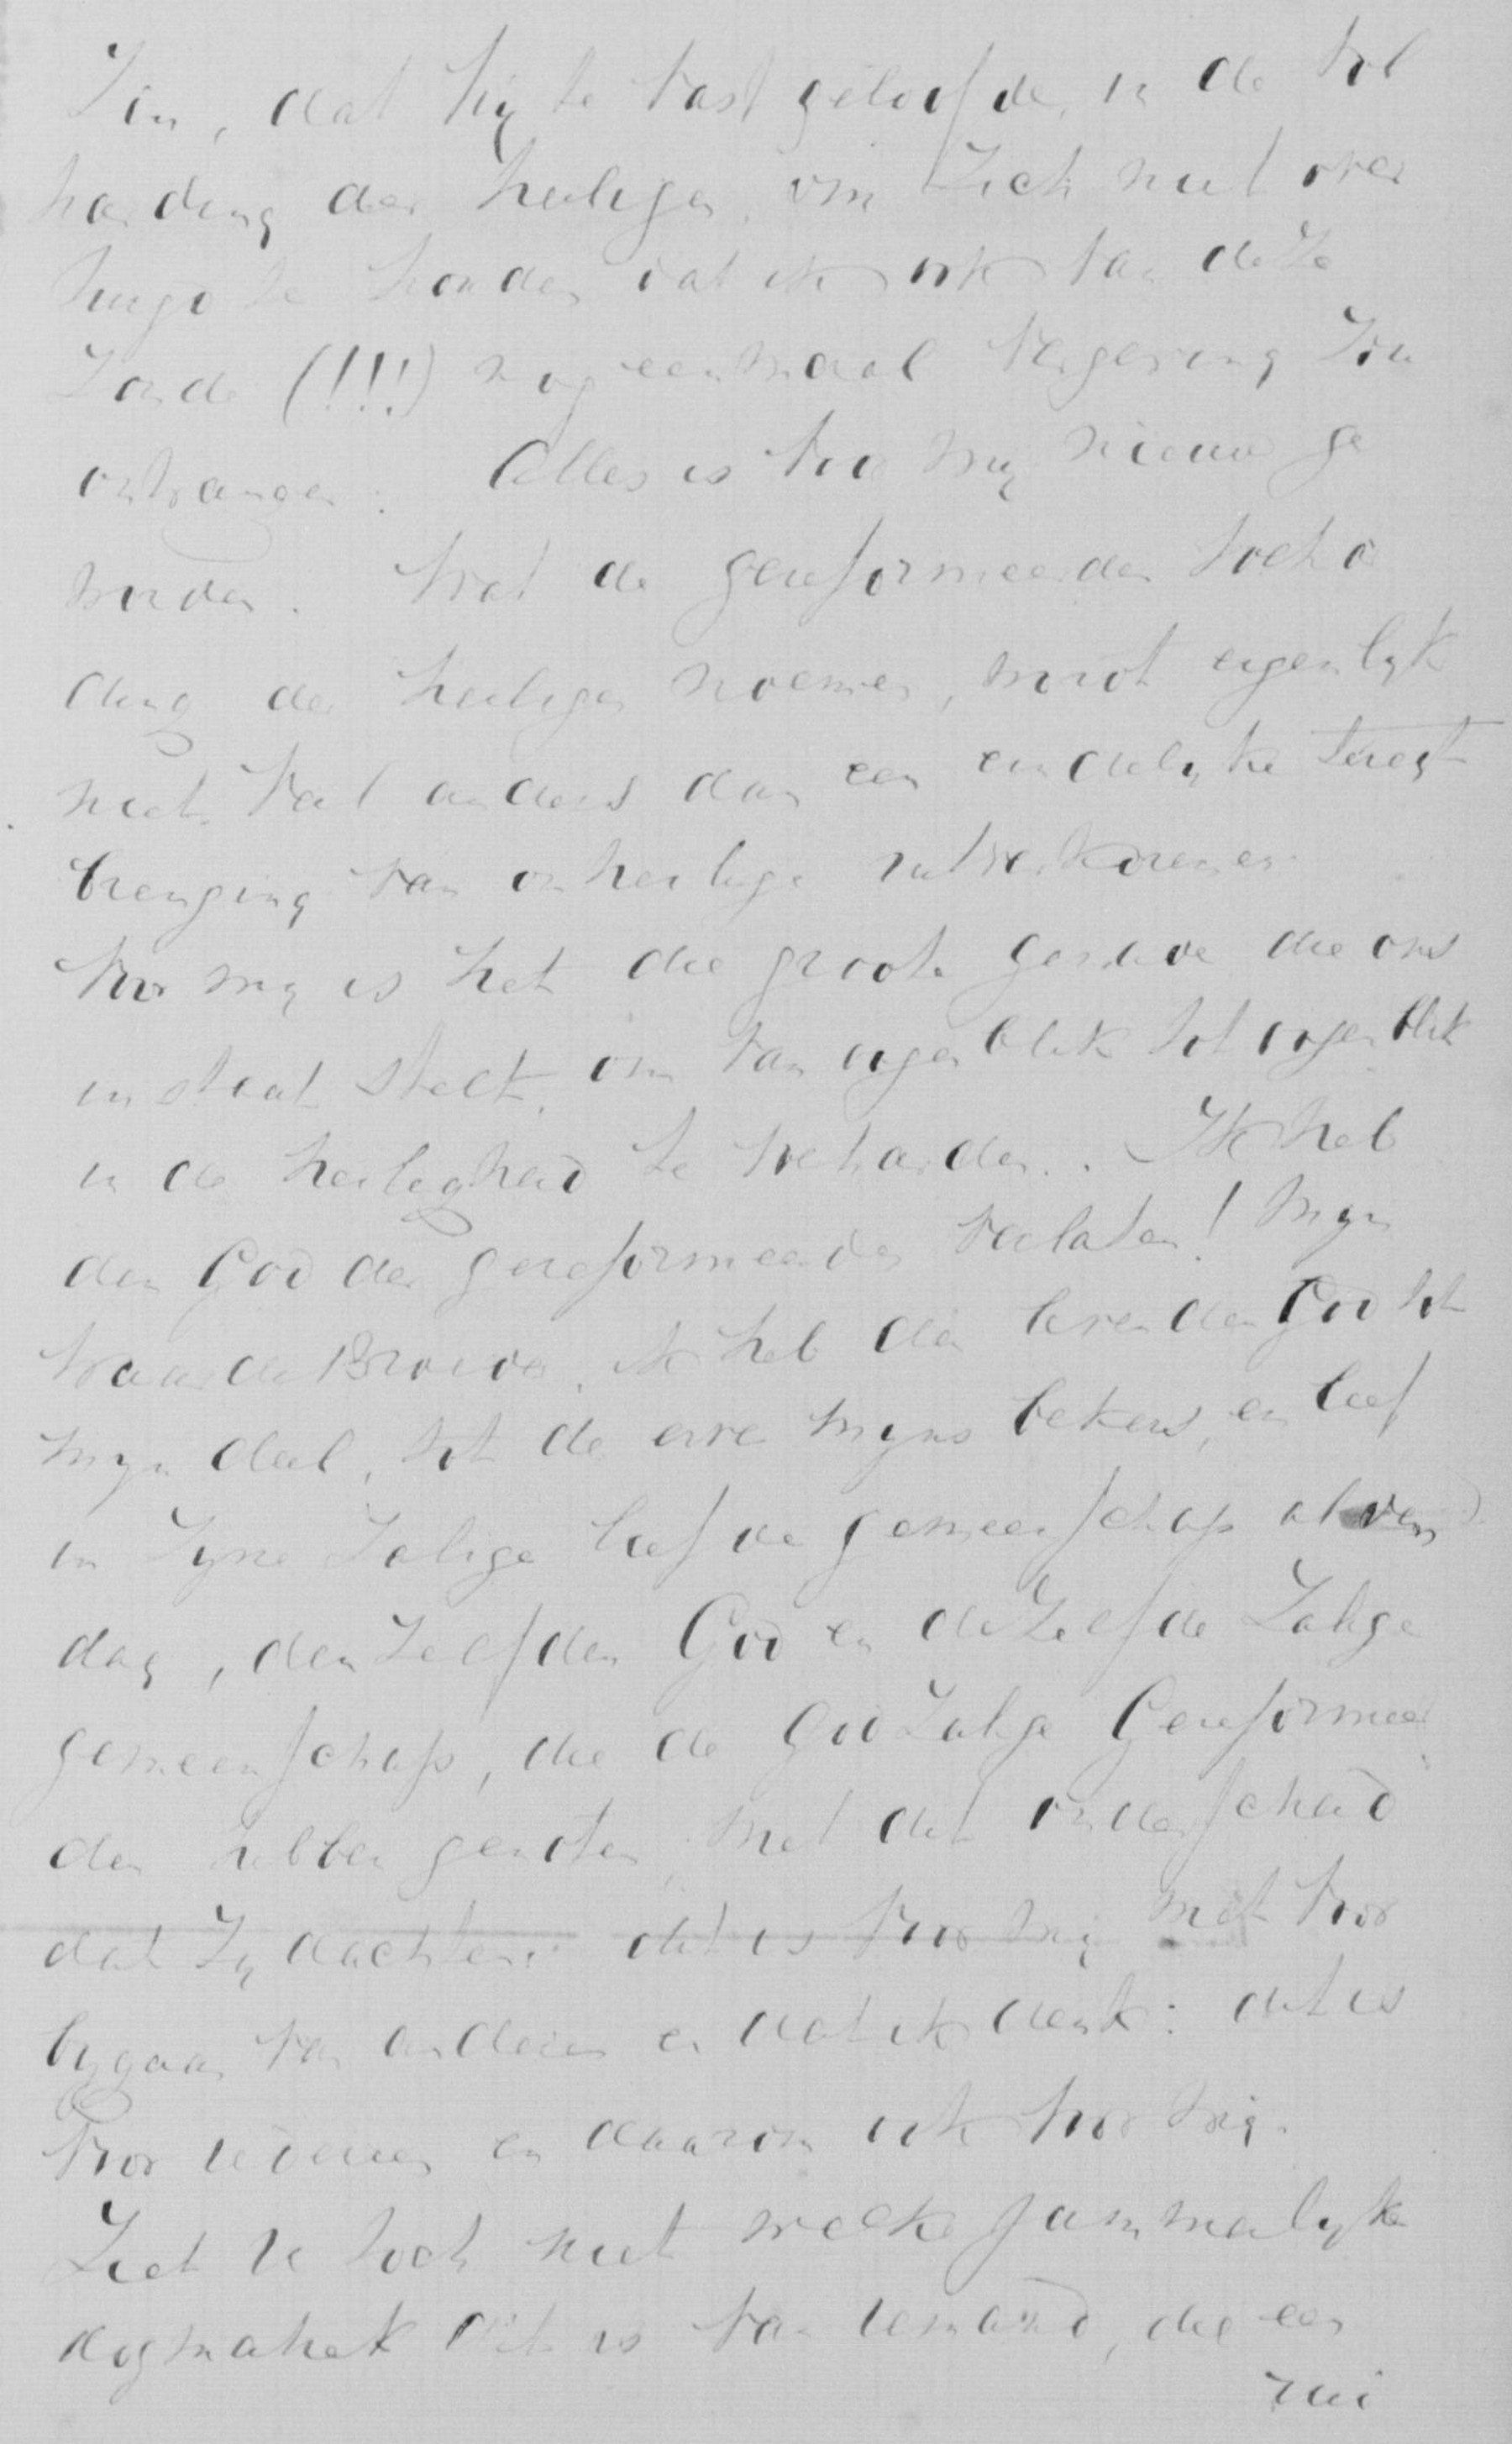 zou, dat hij te vast geloofde in de vol
harding der heiligen, om zich niet over
te houden dat ik ook van deze
zonde (!!!) nog eenmaal vergeving zou
ontvangen. Alles is voor mij nieuw ge
worden. Wat de gereformeerden volhar
ding der heiligen noemen, moest eigenlyk
niet veel anders dan een eindelyke terecht
brenging van onheilige uitverkorenen.
Voor my is het die groote genade die ons
in staat stelt, om van ogenblik tot ogenblik
in de heiligheid te volharden. Ik heb
den God der gereformeerden verlaten! Myn
waarde Broeder, ik heb den levenden God tot
myn deel, tot de erve myns bekers, en leef
in Zyne Zalige liefde gemeenschap
dag, denzelfden God en dezelfde Zalige
gemeenschap, die de Godzalige Gereformeer
den hebben genoten, met dit onderscheid
dat zy dachten: dit is voor my met voor
bygaan van anderen en dat ik denk: dit is
voor iedereen en daarom ook voor my.
Ziet U toch niet welke jammerlyke
dogmatiek dit is van iemand, die een